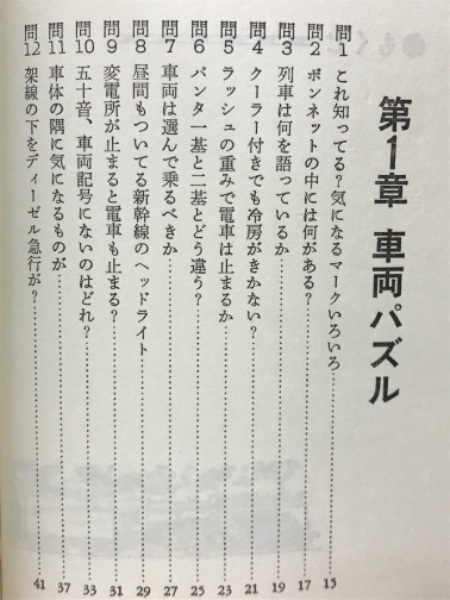 第1章 車両パズル
問1 これ知ってる?気になるマークいろいろ……………15
問2 ボンネットの中には何がある?……………17
問3 列車は何を語っているか……………19
問4 クーラー付きでも冷房がきかない?……………21
問5 ラッシュの重みで電車は止まるか……………23
問6 パンタ一基と二基とどう違う?……………25
問7 車両は選んで乗るべきか……………27
問8 昼間もついてる新幹線のヘッドライト……………29
問9 変電所が止まると電車も止まる?……………31
問10 五十音、車両記号にないのはどれ?……………33
問11 車体の隅に気になるものが……………37
問12 架線の下をディーゼル急行が?……………41